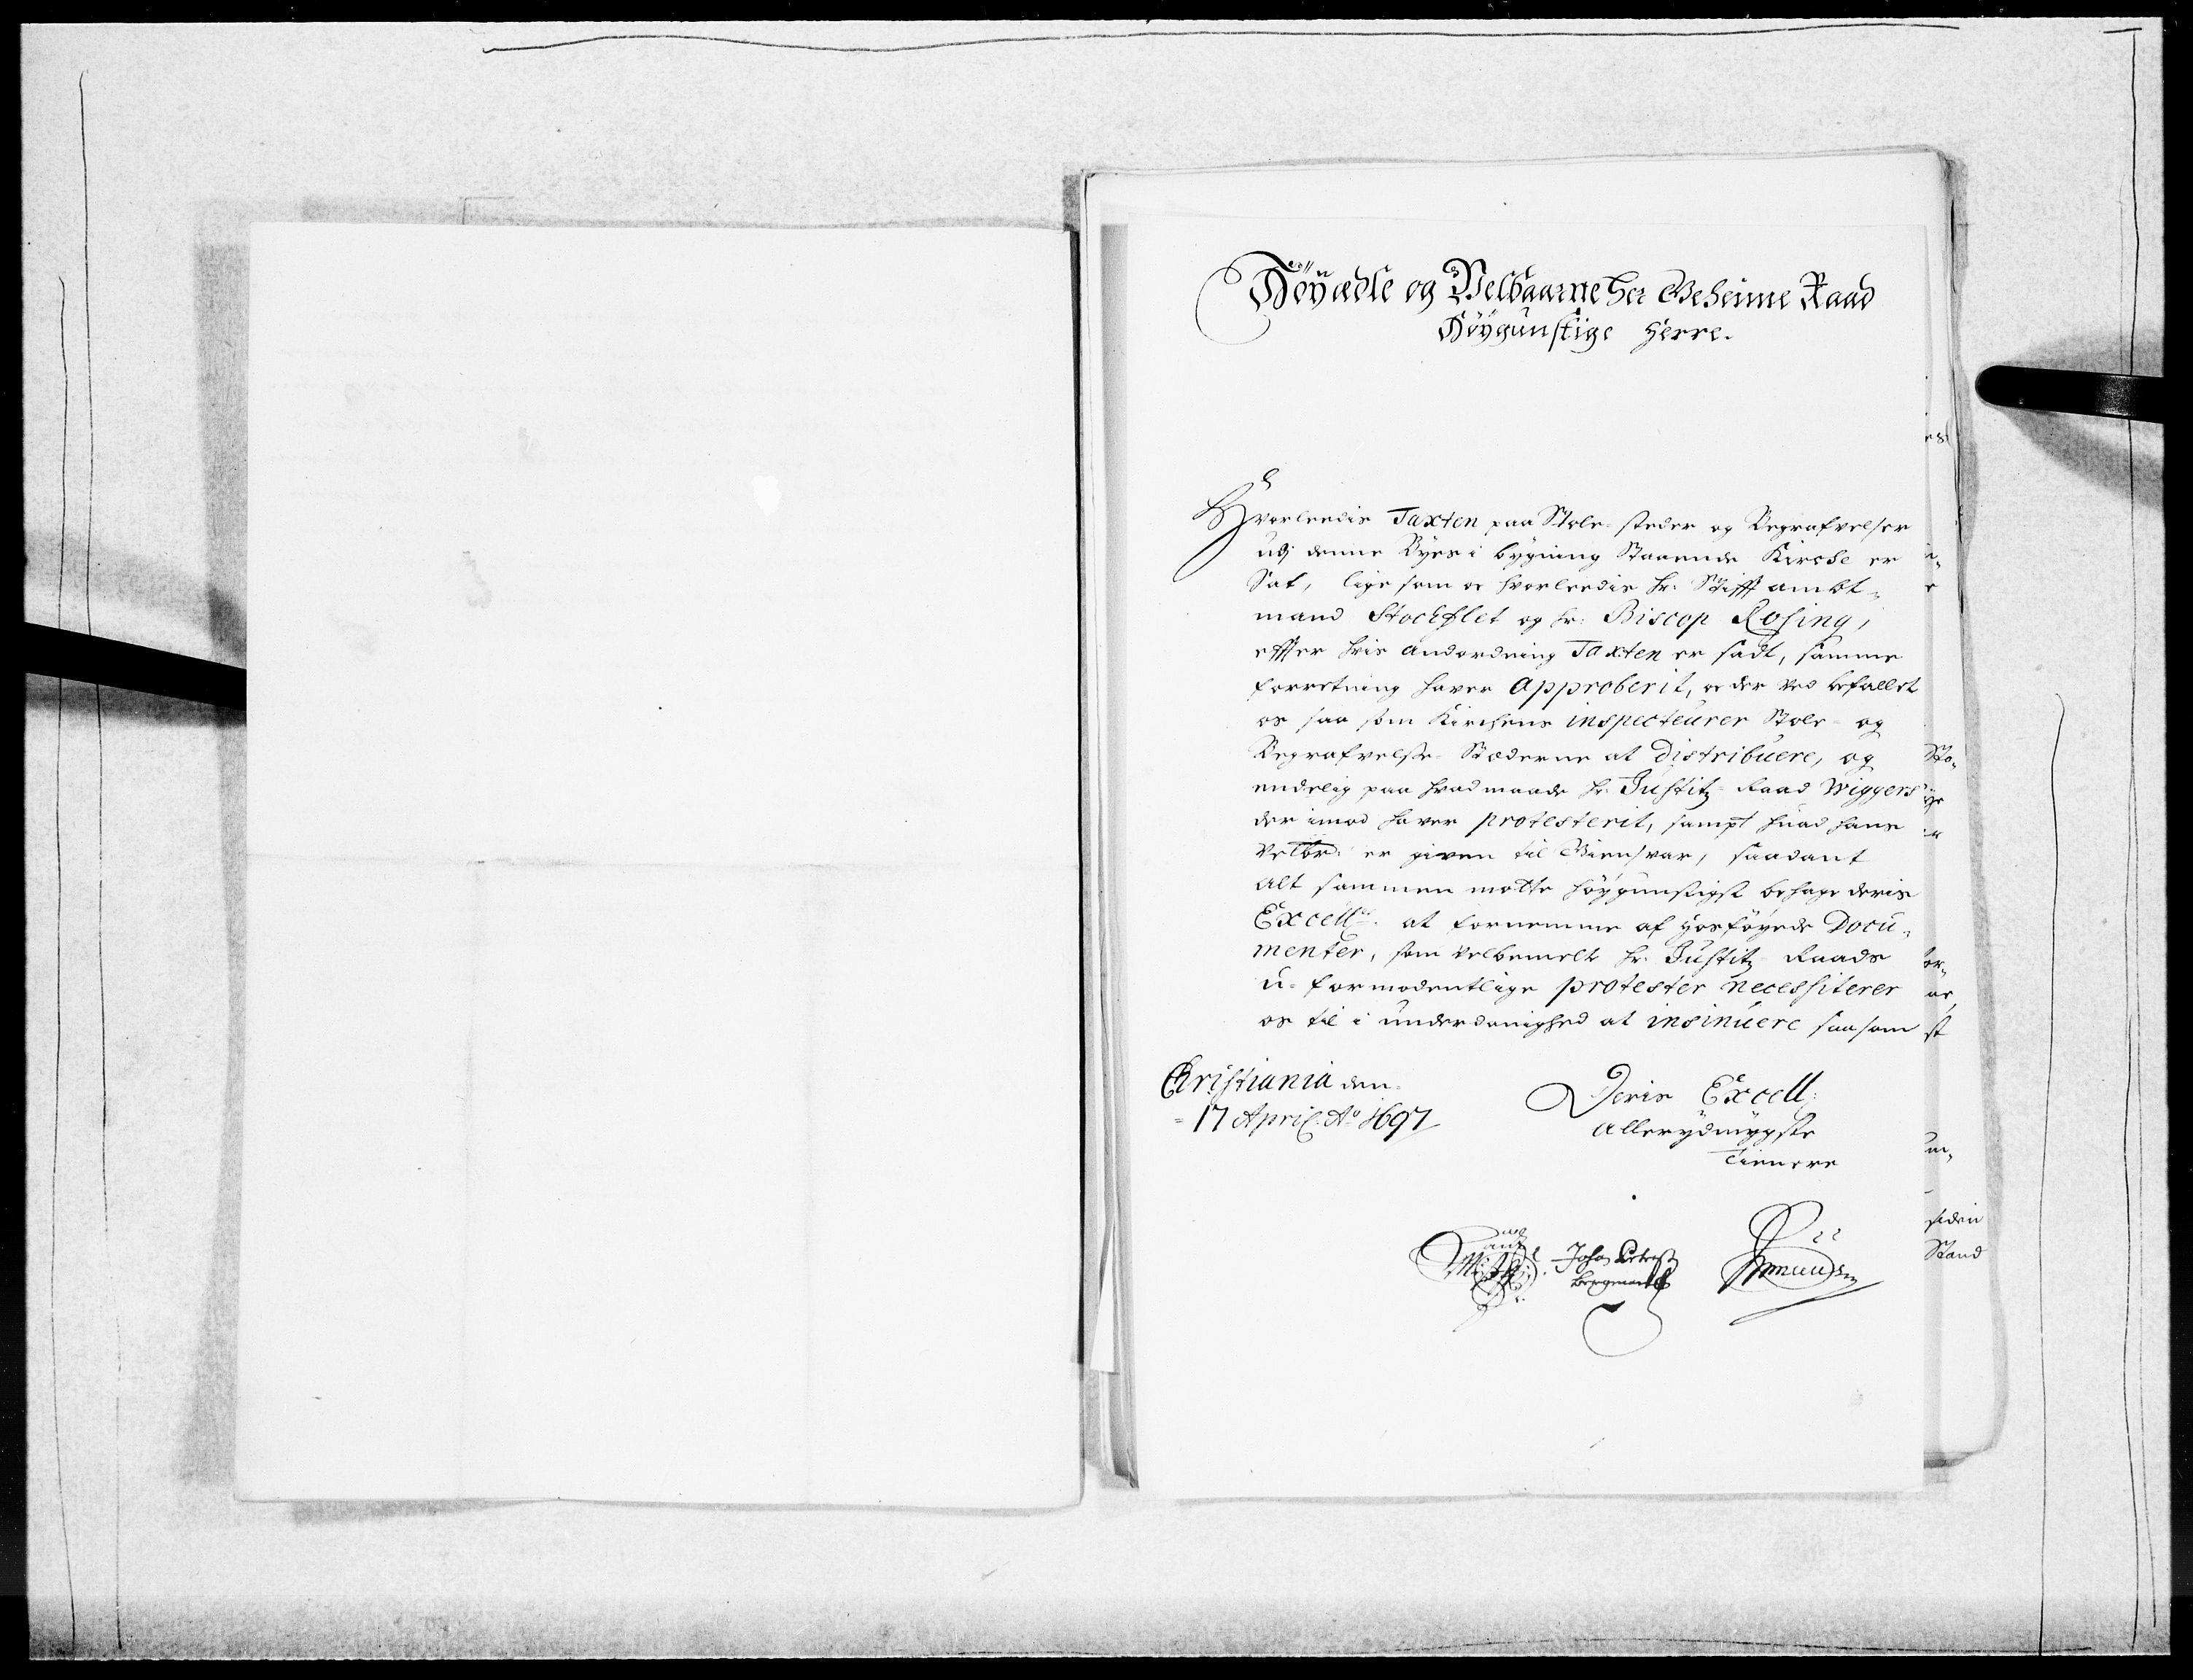 Höyædle og Velbaarne Her Geheime Raad
Höygunstige Herre.
Hvorleedis Taxten paa Stole-steder og Begrafvelser
udj denne Byes i bygning Staaende Kirche er
Sat, lige som oc hvorleedis hr: Stifft ambt-
mand Stochflet og hr: Biscop Rosing,
effter hvis andordning Taxten er sadt, samme
forretning haver approberit, oc der ved befallet
os saa som Kirchens inspecteurer Stole- og
Begrafvelse-Stæderne at distribuere, og
endelig paa hvad maade hr. Justitz-Raad Wiggers
der imod haver protesterit, sampt huad hans
Velbr: er given til Giensvar, saadant
alt sammen motte höygunstigst behage deris
Excell: at fornemme af hosföyede Docu-
menter, som velbemelte hr. Justitz Raads
u-formodentlige protester necessiterer
os til i underdanighed at insinuere saasom
Christiania den
17 April: Ao 1697
Deris Excell:
allerydmygste
Tienere
Johan